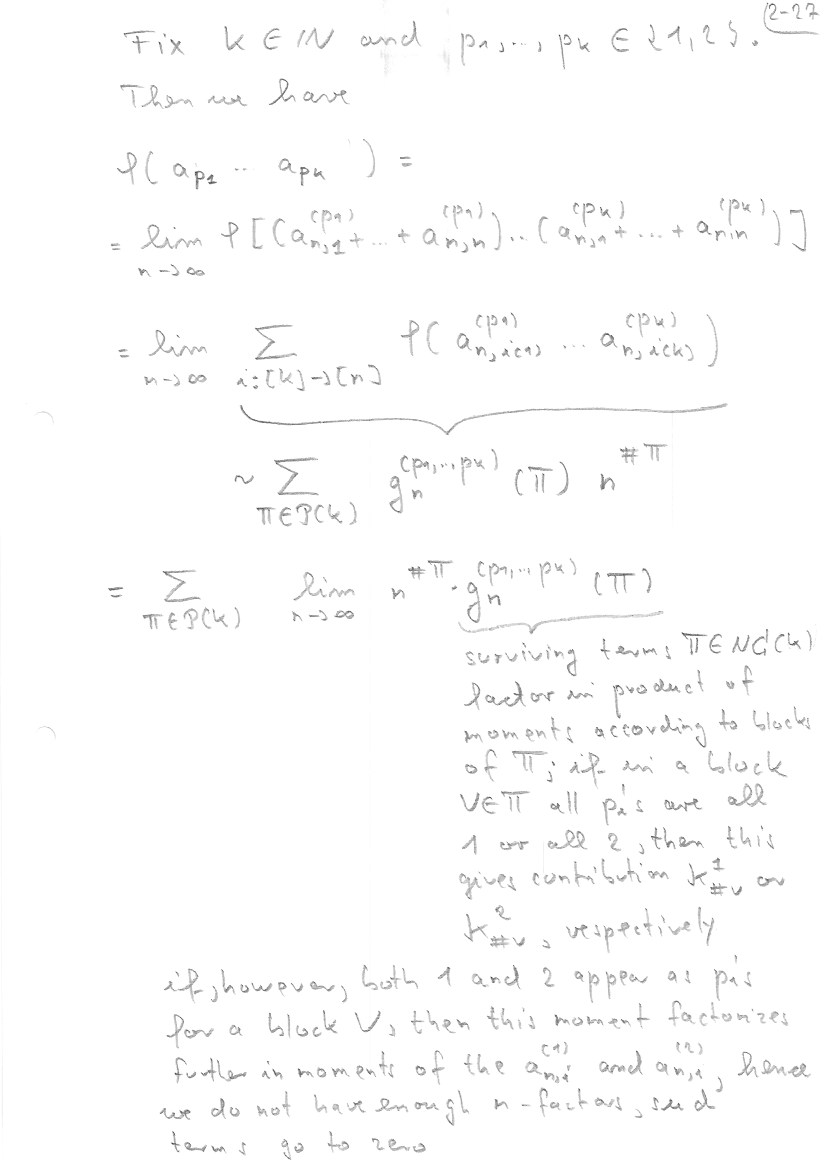 2-27
Fix k ∈ ℕ and p₁, ..., pₖ ∈ {1,2}.
Then we have
φ(a_{p₁} ·· a_{pₖ}) =
= lim_{n→∞} φ[(a_{n,1}^{(p₁)} + ... + a_{n,n}^{(p₁)}) ·· (a_{n,1}^{(pₖ)} + ... + a_{n,n}^{(pₖ)})]
= lim_{n→∞} Σ_{i:[k]→[n]} φ(a_{n,i(1)}^{(p₁)} ... a_{n,i(k)}^{(pₖ)})
~ Σ_{π∈P(k)} g_n^{(p₁,..,pₖ)}(π) n^{#π}
= Σ_{π∈P(k)} lim_{n→∞} n^{#π} · g_n^{(p₁,..,pₖ)}(π)
surviving terms π∈NC(k)
factor in product of
moments according to blocks
of π; if in a block
V∈π all pᵢ's are all
1 or all 2, then this
gives contribution k_{#V}^1 or
k_{#V}^2, respectively
if, however, both 1 and 2 appear as pᵢ's
for a block V, then this moment factorizes
further in moments of the a_{n,i}^{(1)} and a_{n,i}^{(2)}, hence
we do not have enough n-factors, such
terms go to zero